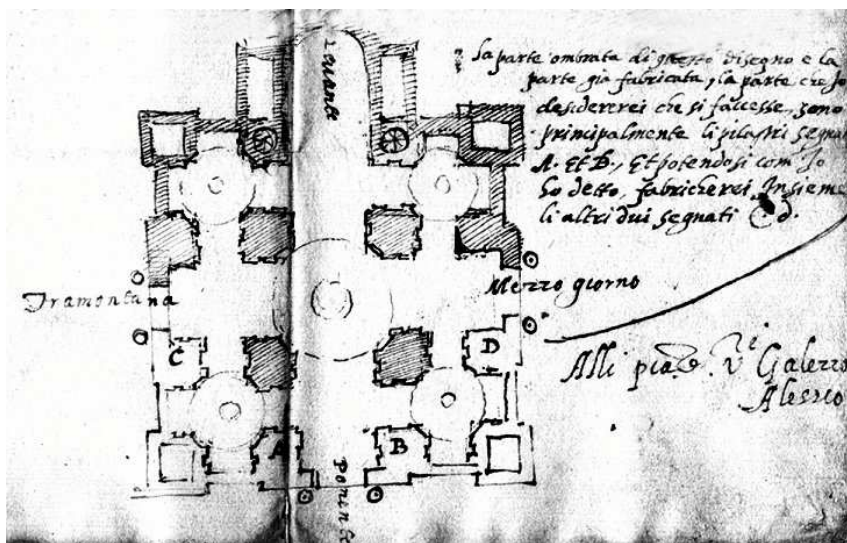 La parte ombrata di questo disegno e la
parte già fabricata, la parte che Jo
desidererei che si faccesse, sono
principalmente li pilastri segnati
A. et B., et potendosi com Jo
ho detto, fabricherei insieme
li altri dui segnati C. d.
Levante
Tramontana
Mezzo giorno
C
D
Alli
Galeazzo
Alessio
A
B
Ponente